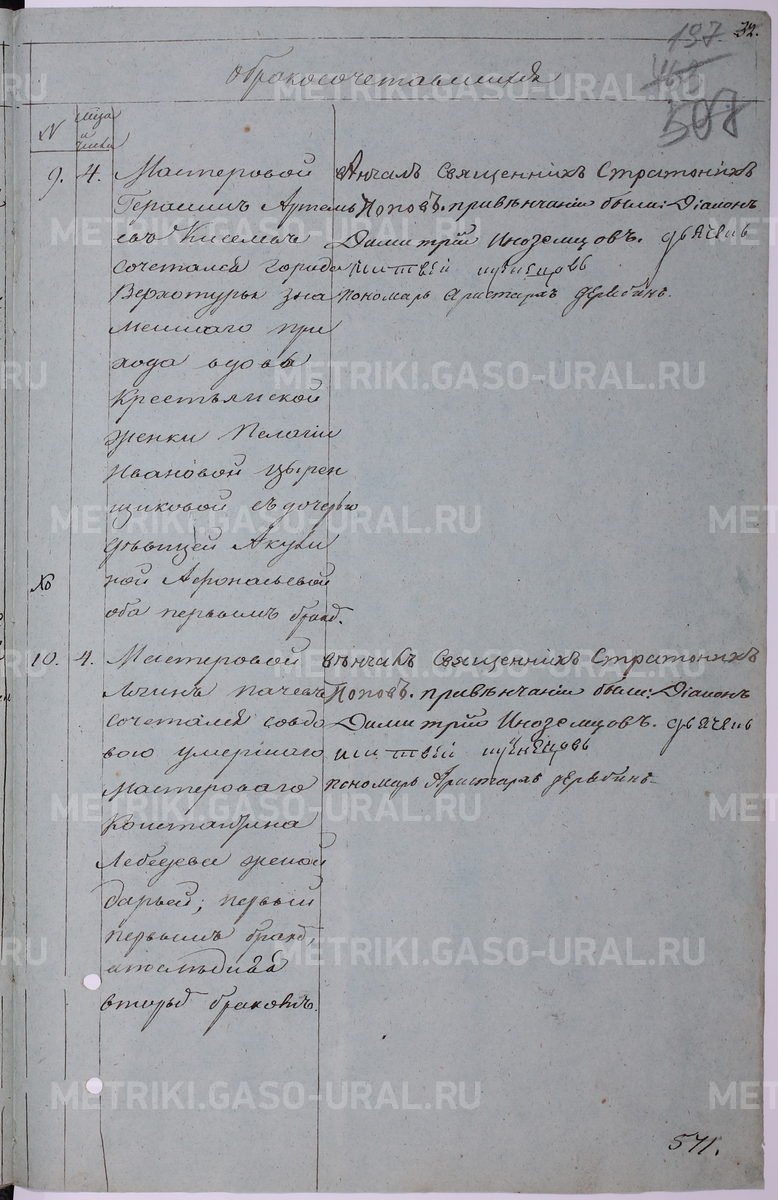 32.
197.
468
507
о бракосочетавшихся
N
м҃ца и числа
9. 4. Мастеровой
Герасимъ Артемь
евъ Киселевъ
сочетался города
Верхотурья Зна
менскаго при
хода вдовы
Крестьянской
женки Пелагіи
Ивановой Пырен
щиковой съ дочерью
дѣвицей Акули
ной Афонасьевой
оба первымъ бракѡ.
вѣнчалъ Священникъ Стратоникъ
Поповъ. при вѣнчаніи были: Діаконъ
Димитрій Иноземцовъ. дьячекъ
пономарь Аристархъ Дерябинъ.
№
10. 4. Мастеровой
Логинъ Пачевъ
сочетался со вдо
вою умершаго
Мастероваго
Константина
Лебедева женой
Дарьей; первый
первымъ бракѡ,
а последняя
вторы бракомъ.
вѣнчалъ Священникъ Стратоникъ
Поповъ. при вѣнчаніи были: Діаконъ
Димитрій Иноземцовъ. дьячекъ
пономарь Аристархъ Дерябинъ.
571.
METRIKI.GASO-URAL.RU